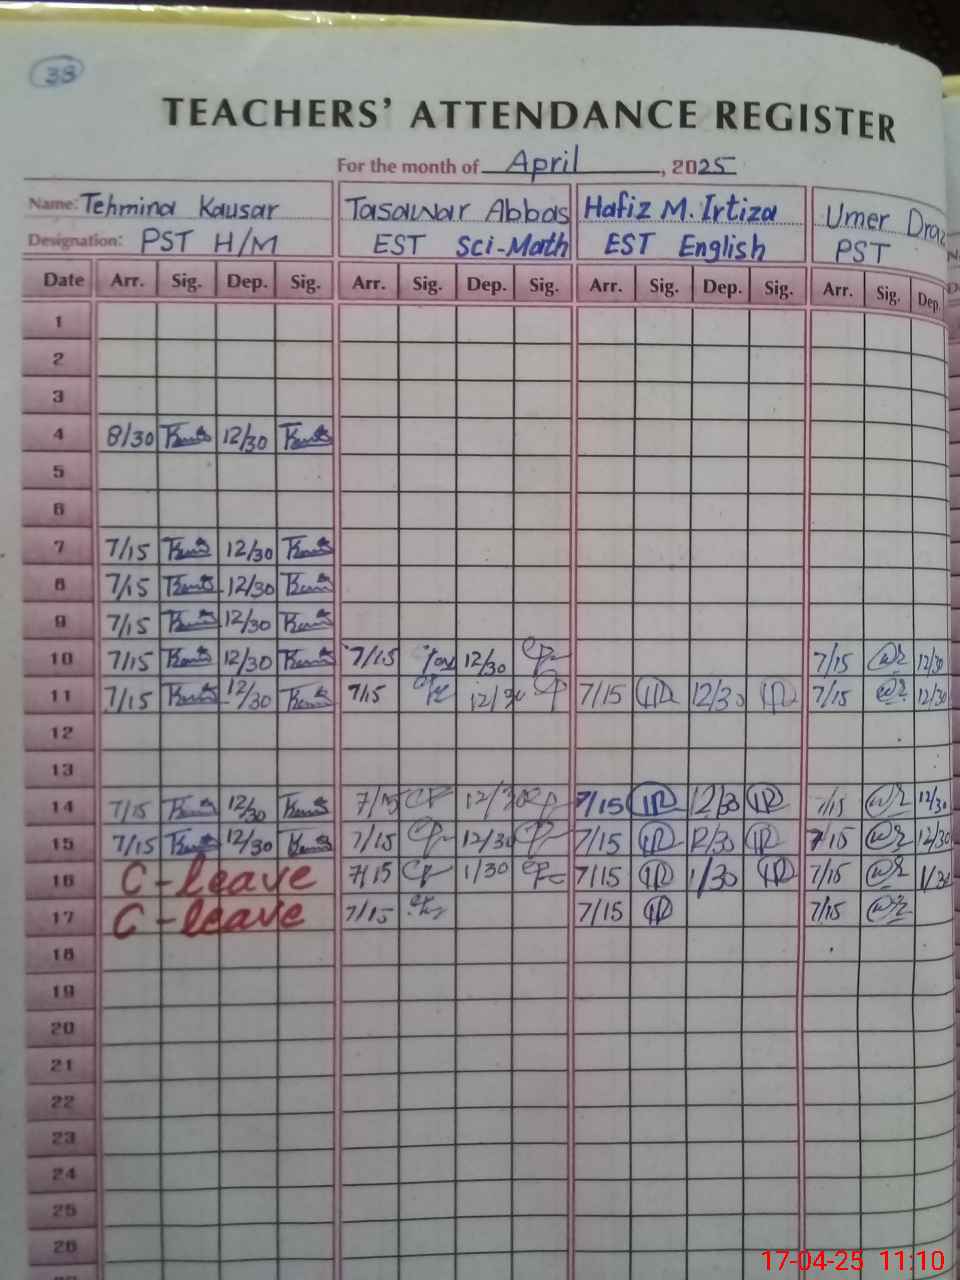 38
TEACHERS' ATTENDANCE REGISTER
For the month of April, 2025
Name: Tehmina Kausar Tasawar Abbas Hafiz M. Irtiza Umer Draz
Designation: PST H/M EST Sci-Math EST English PST
Date Arr. Sig. Dep. Sig. Arr. Sig. Dep. Sig. Arr. Sig. Dep. Sig. Arr. Sig. Dep.
1
2
3
4 8/30 12/30
5
6
7 7/15 12/30
8 7/15 12/30
9 7/15 12/30
10 7/15 12/30 7/15 12/30 7/15 12/30
11 7/15 12/30 7/15 12/30 7/15 12/30 7/15 12/30
12
13
14 7/15 12/30 7/15 12/30 7/15 12/30 7/15 12/30
15 7/15 12/30 7/15 12/30 7/15 12/30 7/15 12/30
16 C-leave 7/15 1/30 7/15 1/30 7/15 1/30
17 C-leave 7/15 7/15 7/15
18
19
20
21
22
23
24
25
26
17-04-25 11:10